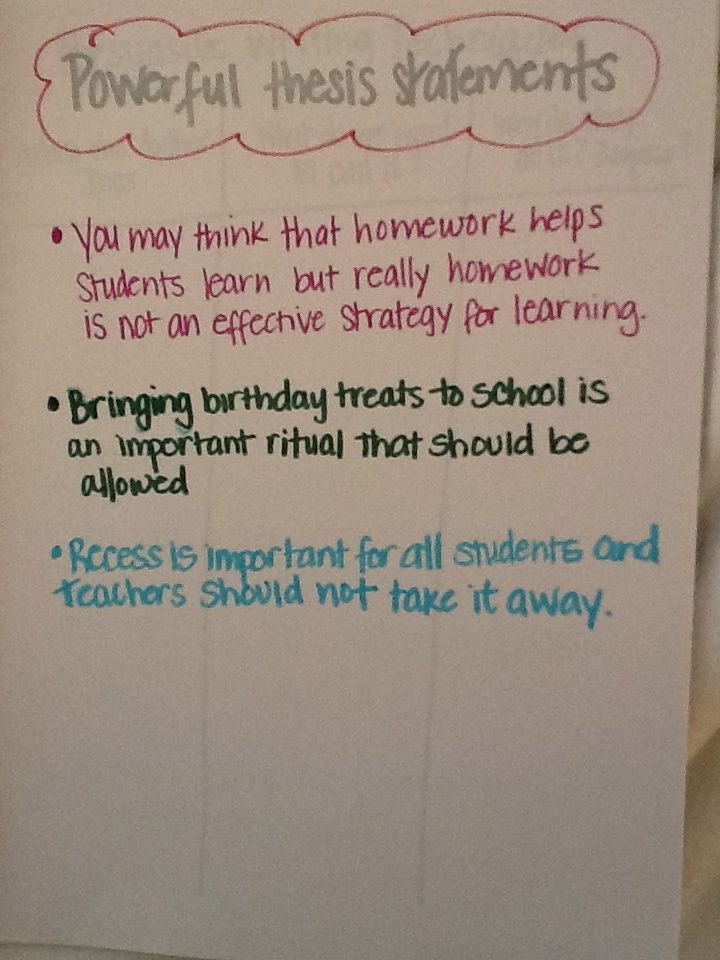 Powerful thesis statements
• You may think that homework helps
students learn but really homework
is not an effective strategy for learning.
• Bringing birthday treats to school is
an important ritual that should be
allowed
• Recess is important for all students and
teachers should not take it away.